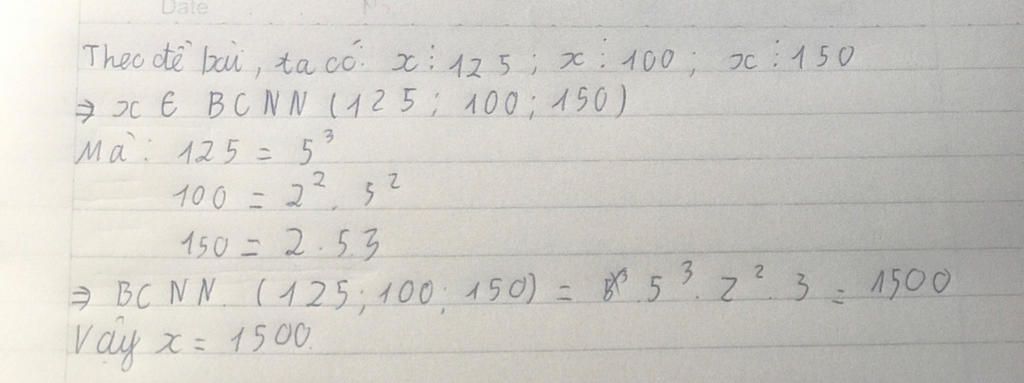 Date No
Theo đề bài, ta có: x ⋮ 125 ; x ⋮ 100 ; x ⋮ 150
⇒ x ∈ BCNN (125 ; 100 ; 150)
Mà: 125 = 5³
100 = 2² . 5²
150 = 2 . 5.3
⇒ BCNN. (125 ; 100 ; 150) = 5³ . 2² . 3 = 1500
Vậy x = 1500.